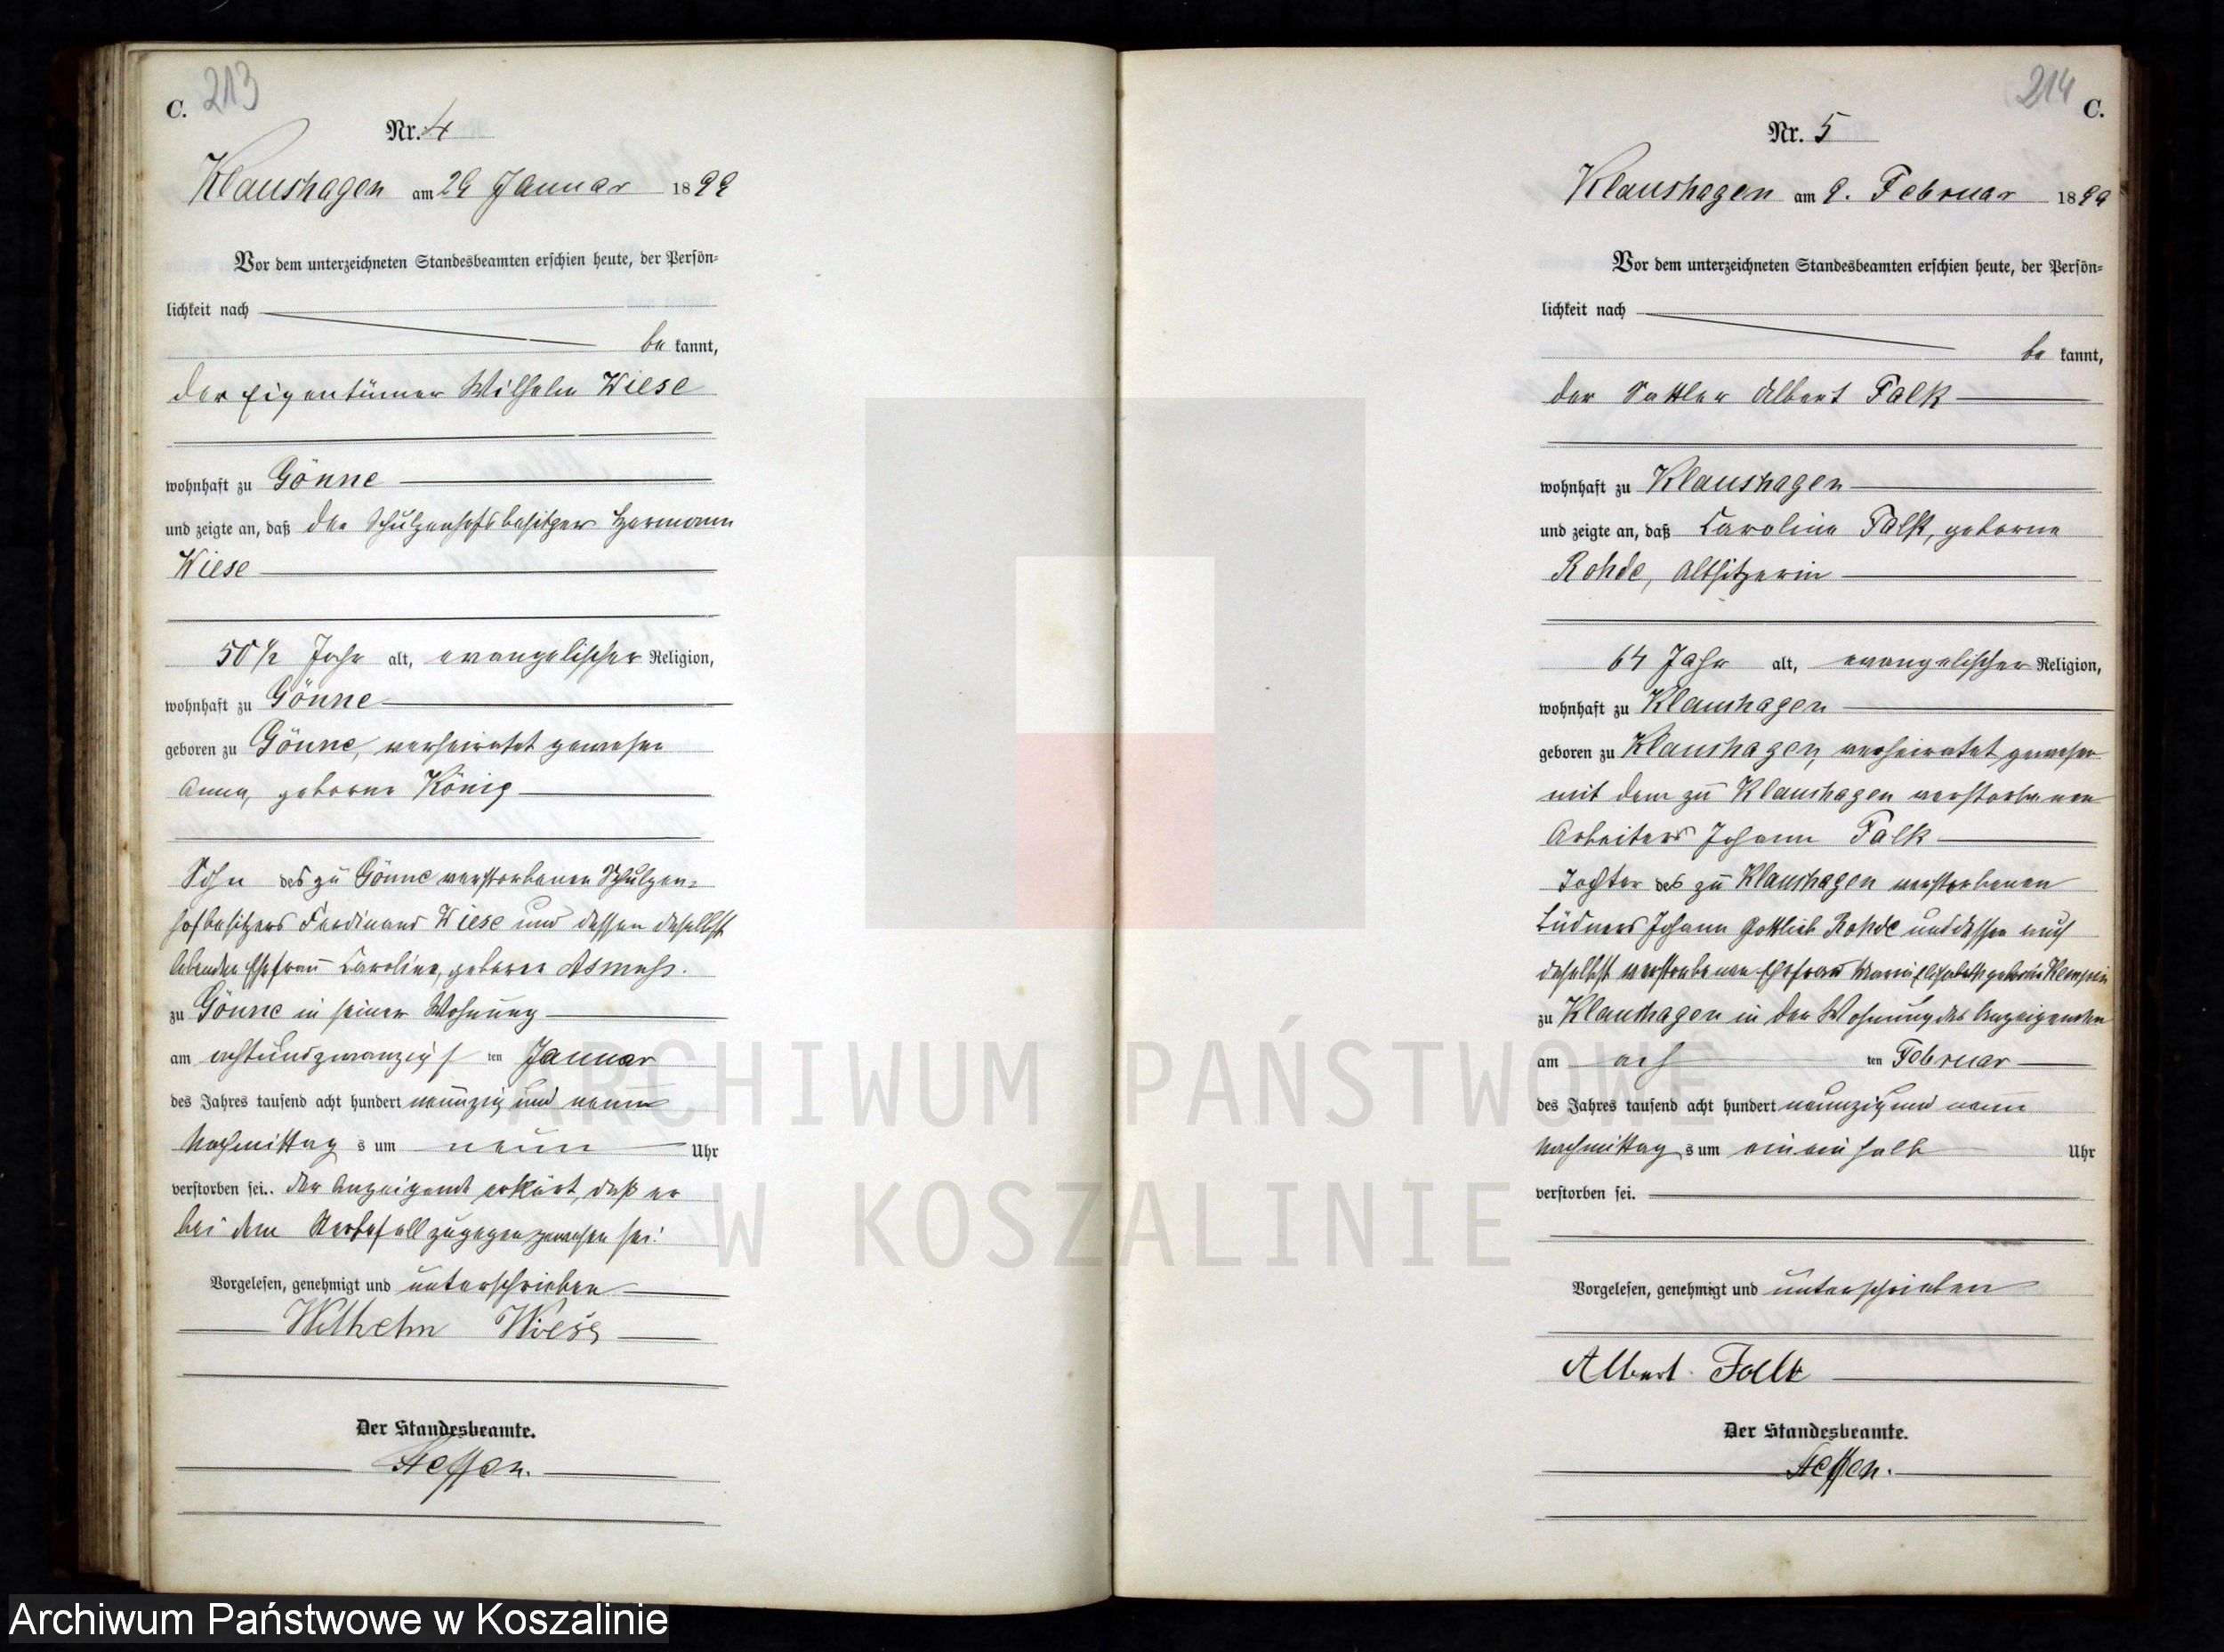 C. 213
Nr. 4
Klaushagen am 29 Januar 1899
Vor dem unterzeichneten Standesbeamten erschien heute, der Persön-
lichkeit nach
be kannt,
der Eigentümer Wilhelm Wiese
wohnhaft zu Gönne
und zeigte an, daß der Schulzenhofsbesitzer Hermann
Wiese
50 1/2 Jahr alt, evangelischer Religion,
wohnhaft zu Gönne
geboren zu Gönne, verheiratet gewesen
Anna, geborne König
Sohn des zu Gönne verstorbenen Schulzen-
hofbesitzers Ferdinand Wiese und dessen daselbst
lebenden Ehefrau Caroline, geborne Asmuss.
zu Gönne in seiner Wohnung
am achtundzwanzigs ten Januar
des Jahres tausend acht hundert neunzig und neun
Nachmittag s um neun Uhr
verstorben sei.. Der Anzeigende erklärt, daß er
bei dem Sterbefall zugegen gewesen sei.
Vorgelesen, genehmigt und unterschrieben
Wilhelm Wiese
Der Standesbeamte.
Steffen.
214 C.
Nr. 5
Klaushagen am 9. Februar 1899
Vor dem unterzeichneten Standesbeamten erschien heute, der Persön-
lichkeit nach
be kannt,
der Sattler Albert Falk
wohnhaft zu Klaushagen
und zeigte an, daß Caroline Falk, geborne
Rohde, Altsitzerin
64 Jahr alt, evangelischer Religion,
wohnhaft zu Klaushagen
geboren zu Klaushagen, verheiratet gewesen
mit dem zu Klaushagen verstorbenen
Arbeiters Johann Falk
Tochter des zu Klaushagen verstorbenen
Büdners Johann Gottlieb Rohde und dessen auch
daselbst verstorbenen Ehefrau Marie Elisabeth geborne
zu Klaushagen in der Wohnung des Anzeigenden
am ach ten Februar
des Jahres tausend acht hundert neunzig und neun
Nachmittag s um ein ein halb Uhr
verstorben sei.
Vorgelesen, genehmigt und unterschrieben
Albert Falk
Der Standesbeamte.
Steffen.
ARCHIWUM PAŃSTWOWE
W KOSZALINIE
Archiwum Państwowe w Koszalinie